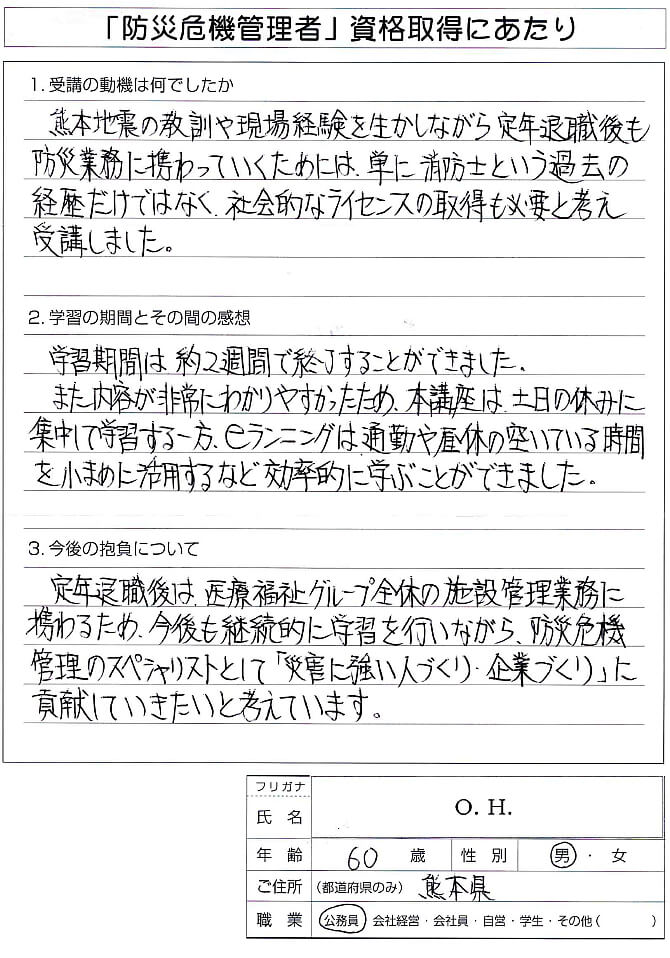 「防災危機管理者」資格取得にあたり
1. 受講の動機は何でしたか
熊本地震の教訓や現場経験を生かしながら定年退職後も
防災業務に携わっていくためには、単に消防士という過去の
経歴だけではなく、社会的なライセンスの取得も必要と考え
受講しました。
2. 学習の期間とその間の感想
学習期間は約2週間で終了することができました。
また内容が非常にわかりやすかったため、本講座は、土日の休みに
集中して学習する一方、eランニングは通勤や昼休の空いている時間
を小まめに活用するなど効率的に学ぶことができました。
3. 今後の抱負について
定年退職後は、医療福祉グループ全体の施設管理業務に
携わるため、今後も継続的に学習を行いながら、防災危機
管理のスペシャリストとして「災害に強い人づくり・企業づくり」に
貢献していきたいと考えています。
フリガナ
氏 名 O. H.
年 齢 60 歳 性 別 男 ・ 女
ご住所 (都道府県のみ) 熊本県
職 業 公務員 会社経営・会社員・自営・学生・その他( )